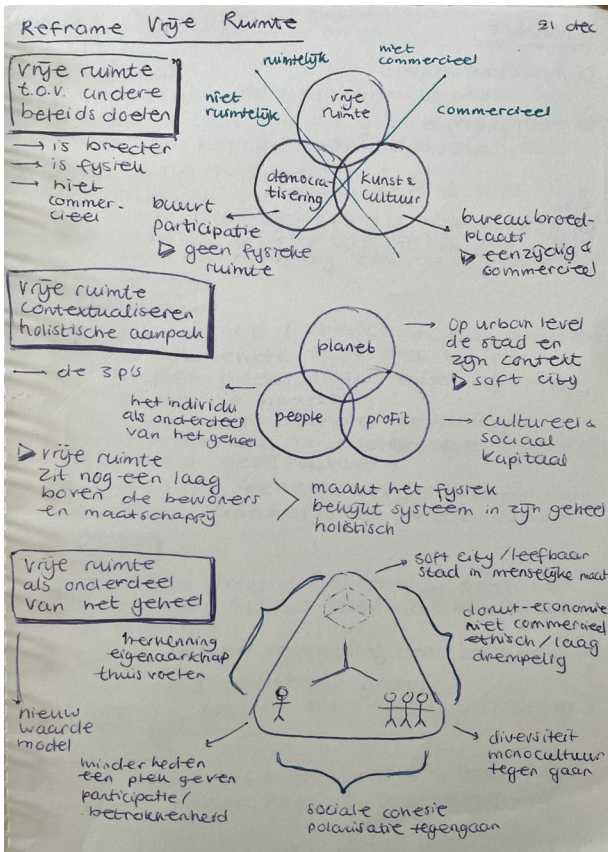 Reframe Vrije Ruimte
21 dec
vrije ruimte
t.o.v. andere
beleids doelen
→ is breder
→ is fysiek
→ niet
commer-
cieel
ruimtelijk
niet
commercieel
niet
ruimtelijk
commercieel
vrije
ruimte
democra-
tisering
kunst &
cultuur
buurt
participatie
▷ geen fysieke
ruimte
bureau broed-
plaats
▷ eenzijdig &
commercieel
vrije ruimte
contextualiseren
holistische aanpak
— de 3 p's
planet
people
profit
→ op urban level
de stad en
zijn context
▷ soft city
het individu
als onderdeel
van het geheel
→ cultureel &
sociaal
kapitaal
▷ vrije ruimte
zit nog een laag
boven de bewoners
en maatschappij
> maakt het fysiek
belicht systeem in zijn geheel
holistisch
vrije ruimte
als onderdeel
van het geheel
nieuw
waarde
model
soft city / leefbaar
stad in menselijke maat
herkenning
eigenaarschap
thuis voelen
donut-economie
niet commercieel
ethisch / laag
drempelig
minderheden
een plek geven
participatie /
betrokkenheid
sociale cohesie
polarisatie tegengaan
diversiteit
monocultuur
tegen gaan